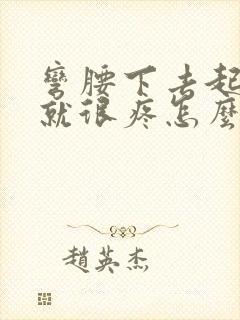 彎腰下去起
就很疼怎麼
趙英杰